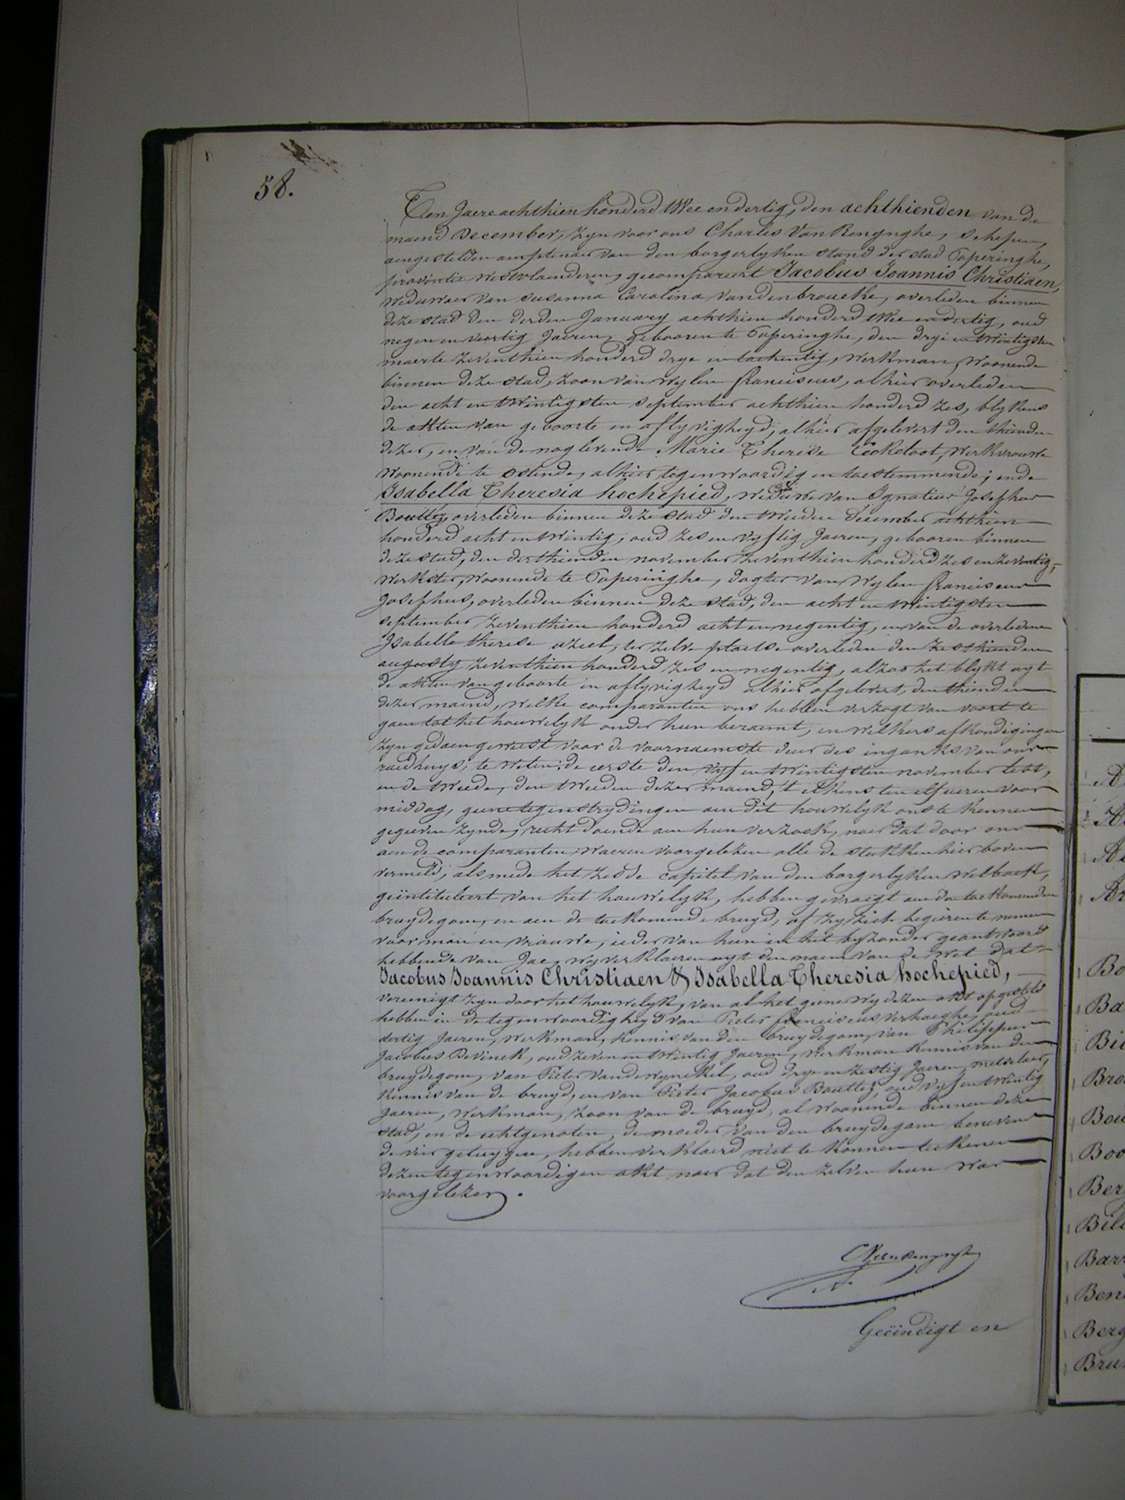 58.
Ten Jaere achthien honderd twee en dertig, den achthienden van de
maend December, zyn voor ons Charles Van Renynghe, schepen,
aengestelden amptenaer van den borgerlyken stand der stad Poperinghe,
provintie Westvlaenderen, gecompareert Jacobus Joannis Christiaen,
weduwaer van Susanna Carolina Vandenbroucke, overleden binnen
deze stad den derden January achthien honderd twee en dertig, oud
negen en veertig Jaeren, gebooren te Poperinghe, den drye en twintigsten
maerte zeventhien honderd drye en tachentig, werkman, woonende
binnen deze stad, zoon van wylen Franciscus, alhier overleden
den acht en twintigsten september achthien honderd zes, blykens
de akten van geboorte en aflyvigheyd, alhier afgelevert den thienden
dezer, en van de noglevende Marie Therese Cockeloot, werkvrouwe
woonende te Ostende, alhier tegenwoordig en toestemmende; ende
Isabella Theresia hochepied, weduwe van Ignatius Josephus
Boutte, overleden binnen deze stad den tweeden December achthien
honderd acht en twintig; oud zes en vyftig Jaeren, gebooren binnen
deze stad, den derthienden november zeventhien honderd zes en zeventig,
werkster, woonende te Poperinghe, dogter van wylen Franciscus
Josephus, overleden binnen deze stad, den acht en twintigsten
september zeventhien honderd acht en negentig, en van de overledene
Isabelle Therese ... ter zelve plaetse overleden den zesthienden
augusty zeventhien honderd zes en negentig, alzoo het blykt uyt
de akten van geboorte en aflyvigheyd alhier afgelevert, den thienden
dezer maend, welke comparanten ons hebben verzogt van voort te
gaen tot het houwelyk onder hun beraemt, en welkers afkondigingen
zyn gedaen geweest voor de voornaemste deur des ingangs van ons
raedhuys; te weten: de eerste den vyf en twintigsten november lest,
en de tweede, den tweeden dezer maend, t'elkens ten elf ueren voor
middag, geene tegenstrydingen aen dit houwelyk ons te kennen
gegeven zynde; recht doende aen hun verzoek, naer dat door ons
aen de comparanten waeren voorgelezen alle de stukken hier boven
vermeld, alsmede het zesde capitel van den borgerlyken wetboek,
geïntituleert van het houwelyk, hebben gevraegt aen den toekomenden
bruydegom, en aen de toekomende bruyd, of zy zich begeeren te nemen
voor man en vrouwe, ieder van hun in het byzonder geantwoord
hebbende van Jae, wy verklaeren uyt den naem van de wet dat
Jacobus Joannis Christiaen & Isabella Theresia hochepied,
vereenigt zyn door het houwelyk, van al het geene wy dezen akt opgesteld
hebben in de tegenwoordigheyd van Pieter Franciscus Verhaeghe, oud
dertig Jaeren, werkman, kennis van den bruydegom, van Philippus
Jacobus Devinck, oud zeven en twintig Jaeren, werkman kennis van den
bruydegom, van Pieter Vandewynckel, oud drye en zestig Jaeren, metselaer,
kennis van de bruyd, en van Pieter Jacobus Boutte, oud vyf en twintig
Jaeren, werkman, zoon van de bruyd, al woonende binnen deze
stad, en de echtgenoten, de moeder van den bruydegom benevens
de vier getuygen, hebben verklaerd niet te konnen teekenen
dezen tegenwoordigen akt naer dat den zelven hun was
voorgelezen.
C Van Renynghe
Geëindigt en
Bo
Ba
Bie
Bro
Bou
Boo
Berg
Bar
Ben
Berg
Bru